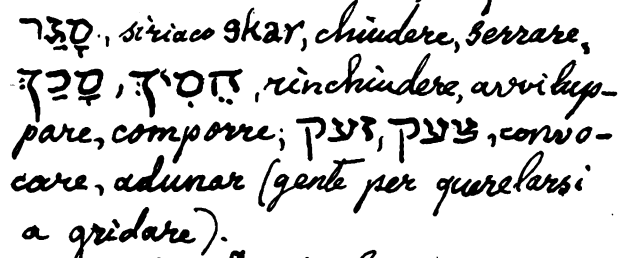 סָכַר., siriaco skar, chiudere, serrare,
סָכַךְ, הֵסִיךְ, rinchiudere, avvilup-
pare, comporre; זעק, צעק, convo-
care, adunar (gente per querelarsi
a gridare).